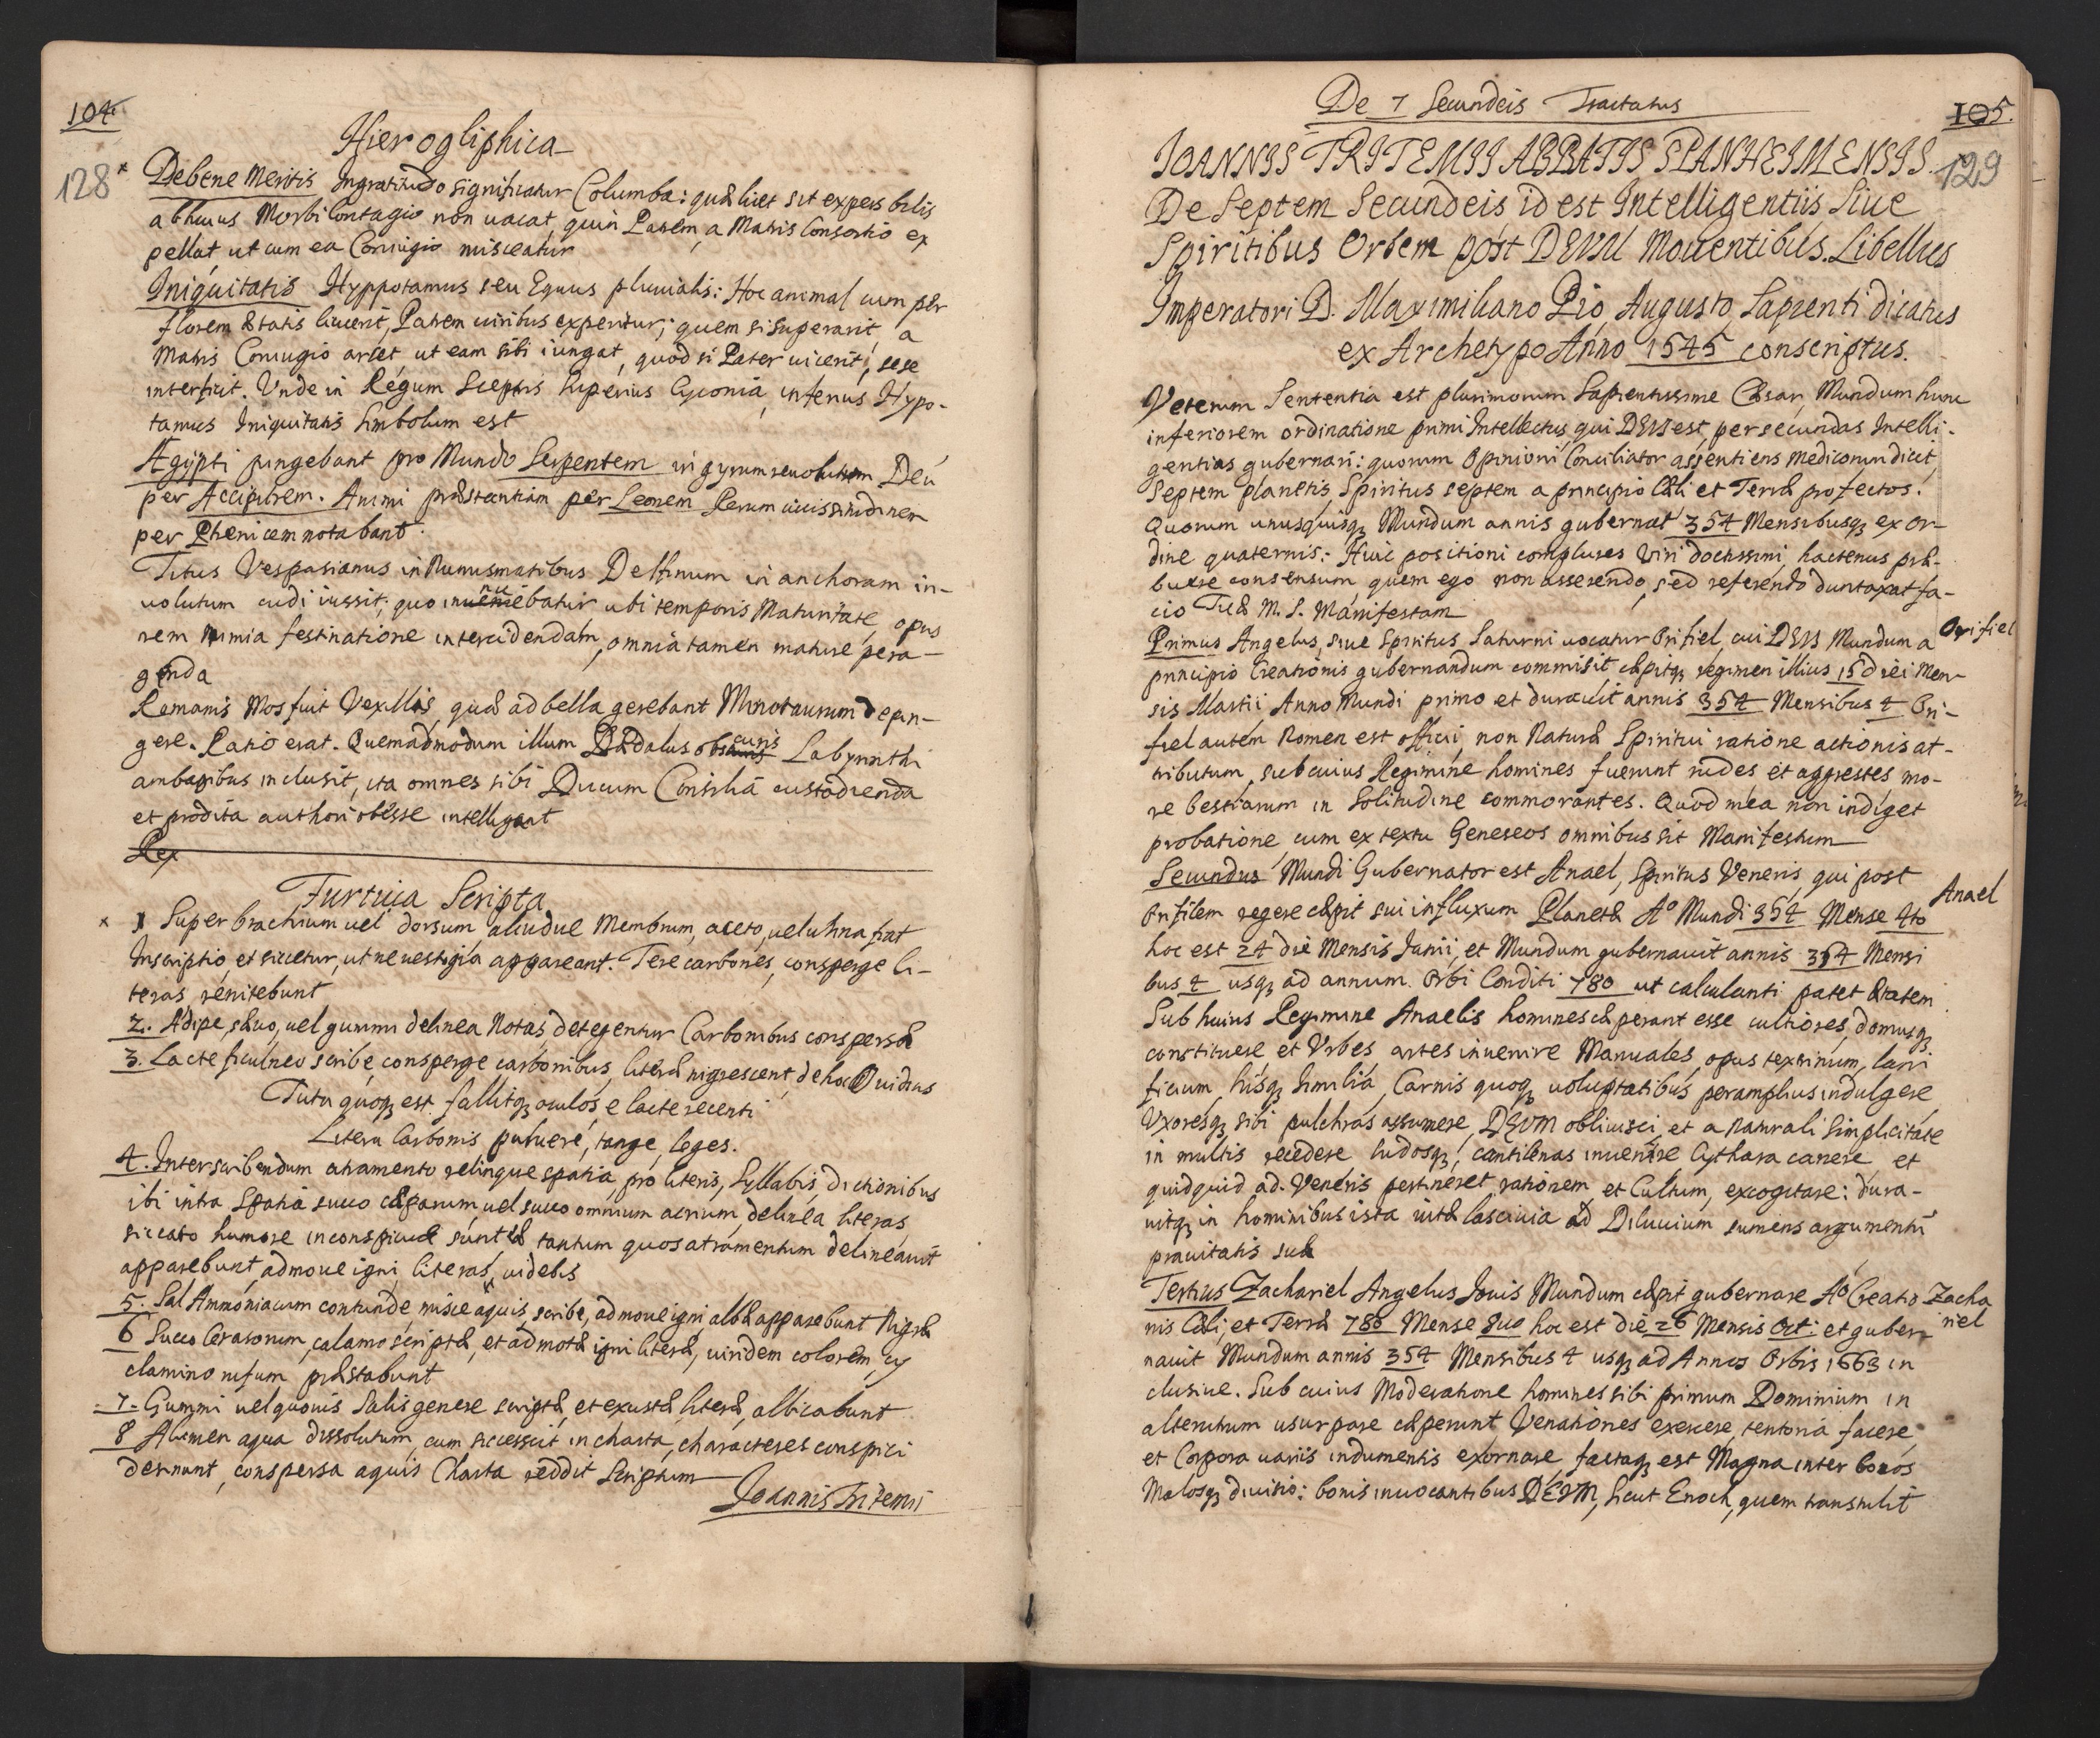 104
128
Hierogliphica
Debene Meritis Ingratitudo significatur Columba: quæ licet sit expers bilis
ab huius Morbi Contagio non vacat, quin Patrem a Matris Consortio ex
pellat ut cum ea Coniugio misceatur
Iniquitatis Hyppotamus seu Equus pluvialis: Hoc animal cum per
florem ætatis licuerit, Patrem viribus experitur; quem si superarit, a
Matris Coniugio arcet, ut eam sibi iungat, quod si Pater vicerit, sese
interficit. Unde in Regum Sceptris superius Cyconia, inferius Hypo-
tamus Iniquitatis Simbolum est
Ægypti pingebant pro Mundo Serpentem in gyrum revolutum Deu
per Accipitrem. Animi præstantiam per Leonem Rerum vicissitudinem
per Phenicem notabant
Titus Vespasianus in Numismatibus Delfinum in anchoram in-
volutum cudi iussit; quo innuebatur ubi temporis Maturitate, opus
rem nimia festinatione intercidendam, omnia tamen mature pera-
genda
Romanis Mos fuit Vexillis, quæ ad bella gerebant Minotaurum depin-
gere. Ratio erat. Quemadmodum illum Dædalus obscuris Labyrinthi
ambagibus inclusit, ita omnes sibi Ducum Consilia custodienda
et prodita authori obesse intelligant
Rex
Furtiva Scripta
1 Super brachium vel dorsum, aliudve Membrum, aceto, vel urina fiat
Inscriptio, et siccetur, ut ne vestigia appareant. Tere carbones, consperge li-
teras renitebunt
2. Adipe, sævo, vel gummi delinea Notas, detegentur Carbonibus conspersæ
3. Lacte ficulneo scribe, consperge carbonibus, literæ nigrescent, de hoc Ovidius
Tuta quoqȝ est fallitqȝ oculos e lacte recenti
Litera Carbonis pulvere, tange, leges.
4. Inter scribendum atramento relinque spatia, pro literis, Syllabis, dictionibus
ibi intra Spatia succo cæparum, vel succo omnium acrium, delinea literas,
siccato humore inconspicuæ sunt et tantum quos atramentum delineavit
apparebunt, admove igni, literas videbis
5. Sal Ammoniacum contunde, misce aquis, scribe, admove igni, albæ apparebunt Nigræ
6 Succo Cerasorum, calamo scriptæ, et admotæ igni literæ, viridem colorem, cy
clamino rufum præstabunt
7. Gummi vel quovis Salis genere scriptæ, et exustæ literæ, albicabunt
8 Alumen aqua dissolutum, cum siccescit in charta, characteres conspici
denuunt, conspersa aquis Charta reddit Scriptum
Joannis Tritemii
De 7 Secundeis Tractatus
105.
129
IOANNIS TRITEMII ABBATIS SPANHEIMENSIS
De Septem Secundeis id est Intelligentiis Sive
Spiritibus Orbem post DEUM Moventibus. Libellus
Imperatori D. Maximiliano Pio Augusto, Sapienti dicatus
ex Archetypo Anno 1545 conscriptus.
Veterum Sententia est plurimorum Sapientissime Cæsar, Mundum hunc
inferiorem ordinatione primi Intellectus, qui DEUS est, per secundas Intelli-
gentias gubernari: quorum Opinioni Conciliator assentiens Medicorum dicit,
Septem planetis, Spiritus septem a principio Cæli et Terræ profectos.
Quorum unusquisqȝ Mundum annis gubernat 354 Mensibusqȝ ex or-
dine quaternis: Huic positioni complures Viri doctissimi, hactenus præ-
buere consensum, quem ego non asserendo, sed referendo duntaxat fa-
cio Tuæ M. S. Manifestam
Primus Angelus, sive Spiritus Saturni vocatur Orifiel, cui DEUS Mundum a
Orifiel
principio Creationis gubernandum commisit, cæpitqȝ regimen illius 15 diei Men-
sis Martii Anno Mundi primo et duravit annis 354 Mensibus 4 Ori-
fiel autem Nomen est officii, non Naturæ Spiritui ratione actionis at-
tributum, sub cuius Regimine homines fuerunt rudes et aggrestes mo-
re bestiarum in Solitudine commorantes. Quod mea non indiget
probatione, cum ex textu Geneseos omnibus sit Manifestum
Secundus Mundi Gubernator est Anael, Spiritus Veneris, qui post
Anael
Orifilem regere cæpit sui influxum Planetæ Aº Mundi 354 Mense 4to
hoc est 24 die Mensis Junii, et Mundum gubernavit annis 354 Mensi
bus 4 usqȝ ad annum Orbi Conditi 780 ut calculanti patet ætatem
Sub huius Regimine Anaelis homines cæperant esse cultiores, domusqȝ
constituere et Urbes, artes invenire Manuales, opus textrinum, lani
ficium, hisqȝ similia, Carnis quoqȝ voluptatibus peramplius indulgere
Uxoresqȝ sibi pulchras assumere, DEUM oblivisci, et a naturali Simplicitate
in multis recedere ludosqȝ, cantilenas invenire Cythara canere et
quidquid ad Veneris pertineret rationem et Cultum, excogitare: dura-
vitqȝ in hominibus ista vitæ lascivia ad Diluvium sumens argumentu
pravitatis suæ
Tertius Zachariel Angelus Jovis Mundum cæpit gubernare Aº Creatio
Zacha
riel
nis Cæli, et Terræ 780 Mense 8vo hoc est die 26 Mensis Oct: et guber-
navit Mundum annis 354 Mensibus 4 usqȝ ad Annos Orbis 1663 in
clusive. Sub cuius Moderatione homines sibi primum Dominium in
alterutrum usurpare cæperunt Venationes exercere, tentoria facere
et Corpora variis indumentis exornare, factaqȝ est Magna inter bonos
Malosqȝ divisio: bonis invocantibus DEUM, sicut Enoch, quem transtulit